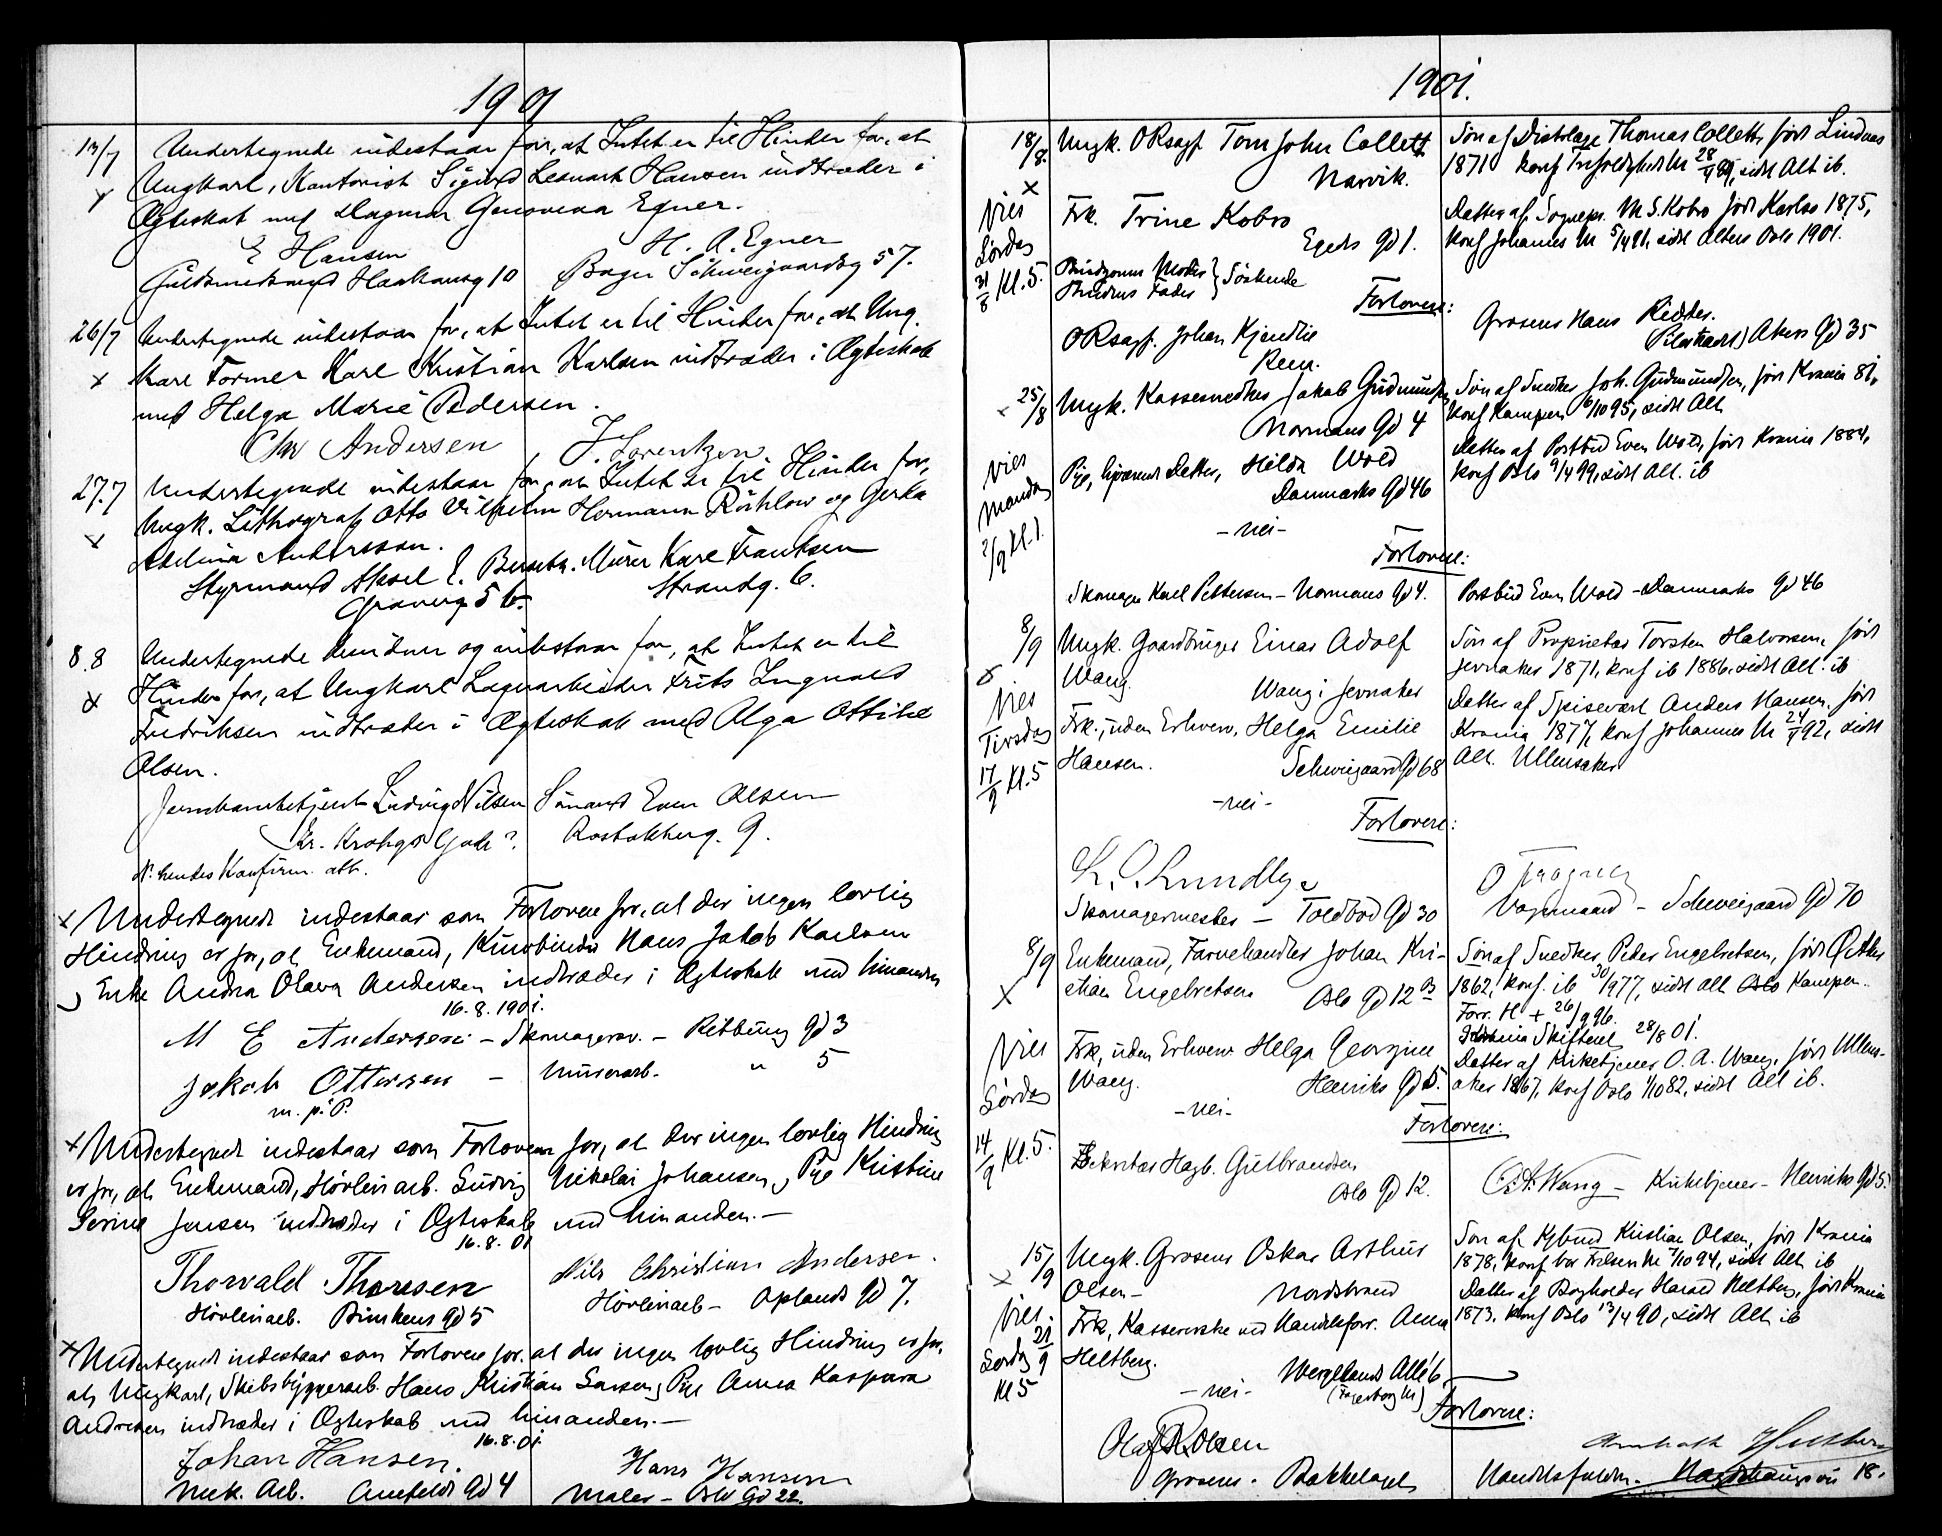 1901
13/7 Undertegnede indestaar for, at Intet er til Hinder for, at
Ungkarl, Kontorist Sigurd Leonard Hansen indtræder i
Ægteskab med Dagmar Genoveva Egner.
E Hansen H. A. Egner
Guldsmedsvend 10 Bager Schweigaardsg 57.
26/7 Undertegnede indestaar for, at Intet er til Hinder for, at Ung-
karl Former Karl Kristian Karlsen indtræder i Ægteskab
med Helga Marie Pedersen.
Chr Andersen J. Lorentzen
27.7 Undertegnede indestaar for, at Intet er til Hinder for,
Ungk. Lithograf Otto Vilhelm Hermann og Gerda
Adelina Andersson.
Styrmand Aksel E. Murer Karl Frantzen
5 b. Strandg. 6.
8.8 Undertegnede kjender og indestaar for, at Intet er til
Hinder for, at Ungkarl Lagerarbeider Frits Ingvald
Fredriksen indtræder i Ægteskab med Olga Ottilie
Olsen.
Jernbanebetjent Ludvig Nilsen Sømand Even Olsen
Kr. Kroghs Gade ?. Rostokkberg. 9.
N: hendes Konfirm. att.
x Undertegnede indestaar som Forlovere for, at der ingen lovlig
Hindring er for, at Enkemand, Hans Jakob Karlsen
Enke Andrea Olava Andersen indtræder i Ægteskab med hinanden
16.8.1901.
M E Andersen – Skomagersv. – Gd 3
Jakob Ottersen – Murerarb. " 5
m. p. P.
x Undertegnede indestaar som Forlovere for, at der ingen lovlig Hindring
er for, at Enkemand, Høvleriarb. Ludvig Nikolai Johansen, Pige Kristine
Serine Jensen indtræder i Ægteskab med hinanden. –
16.8.01
Thorvald Thoresen Nils Christian Andersen.
Høvleriarb. Gd 5 Høvleriarb – Oplands Gd 7.
x Undertegnede indestaar som Forlovere for, at der ingen lovlig Hindring er for,
at Ungkarl, Skibsbyggerarb. Hans Kristian Larsen, Pige Anna Kaspara
Andresen indtræder i Ægteskab med hinanden. –
16.8.01.
Johan Hansen. Hans Hansen
Mek. Arb. Gd 4 Maler – Oslo Gd 22.
1901.
18/8. Ungk. ORsagf. Tom John Collett Søn af Distrlæge Thomas Collett, født Lindaas
x Narvik. 1871 konf Trefoldighed M, sidst Alt ib.
Vies Frk. Trine Kobro Datter af Sognepr. M S. Kobro født Karlsø 1875,
Lørdag Egeds Gd 1. konf Johannes M 5/4 91, sidst Alters Oslo 1901.
31/8 Kl. 5. Brudgoms Moder } Søskende
Brudens Fader
Forlovere:
ORsagf. Johan Kjendlie Grosser Hans
Akers Gd 35
25/8 Ungk. Kassesnedker Jakob Gudmundsen Søn af Snedker Joh. Gudmundsen, født Krania 81,
Normans Gd 4 konf Kampen 6/10 95, sidst Alt
Vies Pige, hjemmev Datter, Hilda Wold Datter af Postbud Even Wold, født Krania 1884,
Mandag Danmarks Gd 46 konf Oslo 9/4 99, sidst Alt. ib
2/9 Kl. 1. – nei –
Forlovere:
Skomager Karl Pettersen – Normans Gd 4. Postbud Even Wold – Danmarks Gd 46
8/9 Ungk. Gaardbruger Einar Adolf Søn af Proprietær Torsten Halvorsen, født
Wang. Jevnaker 1871, konf ib 1886, sidst Alt. ib
Vies Wang i Jevnaker
Tirsdag Frk., uden Erhverv, Helga Emilie Datter af Spisevært Anders Hansen, født
17/9 Kl. 5 Hansen. Krania 1877, konf Johannes M 92, sidst
Schweigaard Gd 68 Alt. Ullensaker
– nei –
Forlovere:
Skomagermester – Toldbod Gd 30 Vognmand – Schweigaard Gd 70
8/9 Enkemand, Farvehandler Johan Kri- Søn af Snedker Peder Engebretsen, født Ø. Aker
x stian Engebretsen Oslo Gd 12 1862, konf. ib 30/9 77, sidst Alt Kampen.
Forr. H + 26/9 96.
Vies Frk, uden Erhverv Helga Georgine Krania Skifteret 28/8 01.
Wang. Henriks Gd 5. Datter af Kirketjener O. A. Wang, født Ullens-
Lørdag – nei – aker 1867, konf Oslo 1/10 82, sidst Alt ib.
14/9 Kl. 5. Forlovere:
Sekretær Hagb. Gulbrandsen
Oslo Gd 12. O. A. Wang – Kirketjener – Henriks Gd 5.
15/9 Ungk. Grosser Oskar Arthur Søn af Kristian Olsen, født Krania
x Olsen – Nordstrand 1878, konf Vor Frelsers M 7/10 94, sidst Alt ib
Vies Frk, Kassererske ved Handelsforr. Anna Datter af Bogholder Harald Heltberg, født Krania
Lørdag 21/9 Heltberg. 1873, konf Oslo 13/4 90, sidst Alt ib
Kl 5 – nei – Wergelands Allé 6,
Forlovere:
Olaf R. Olsen
Grosser – Bækkelaget Handelsfuldm. 18.